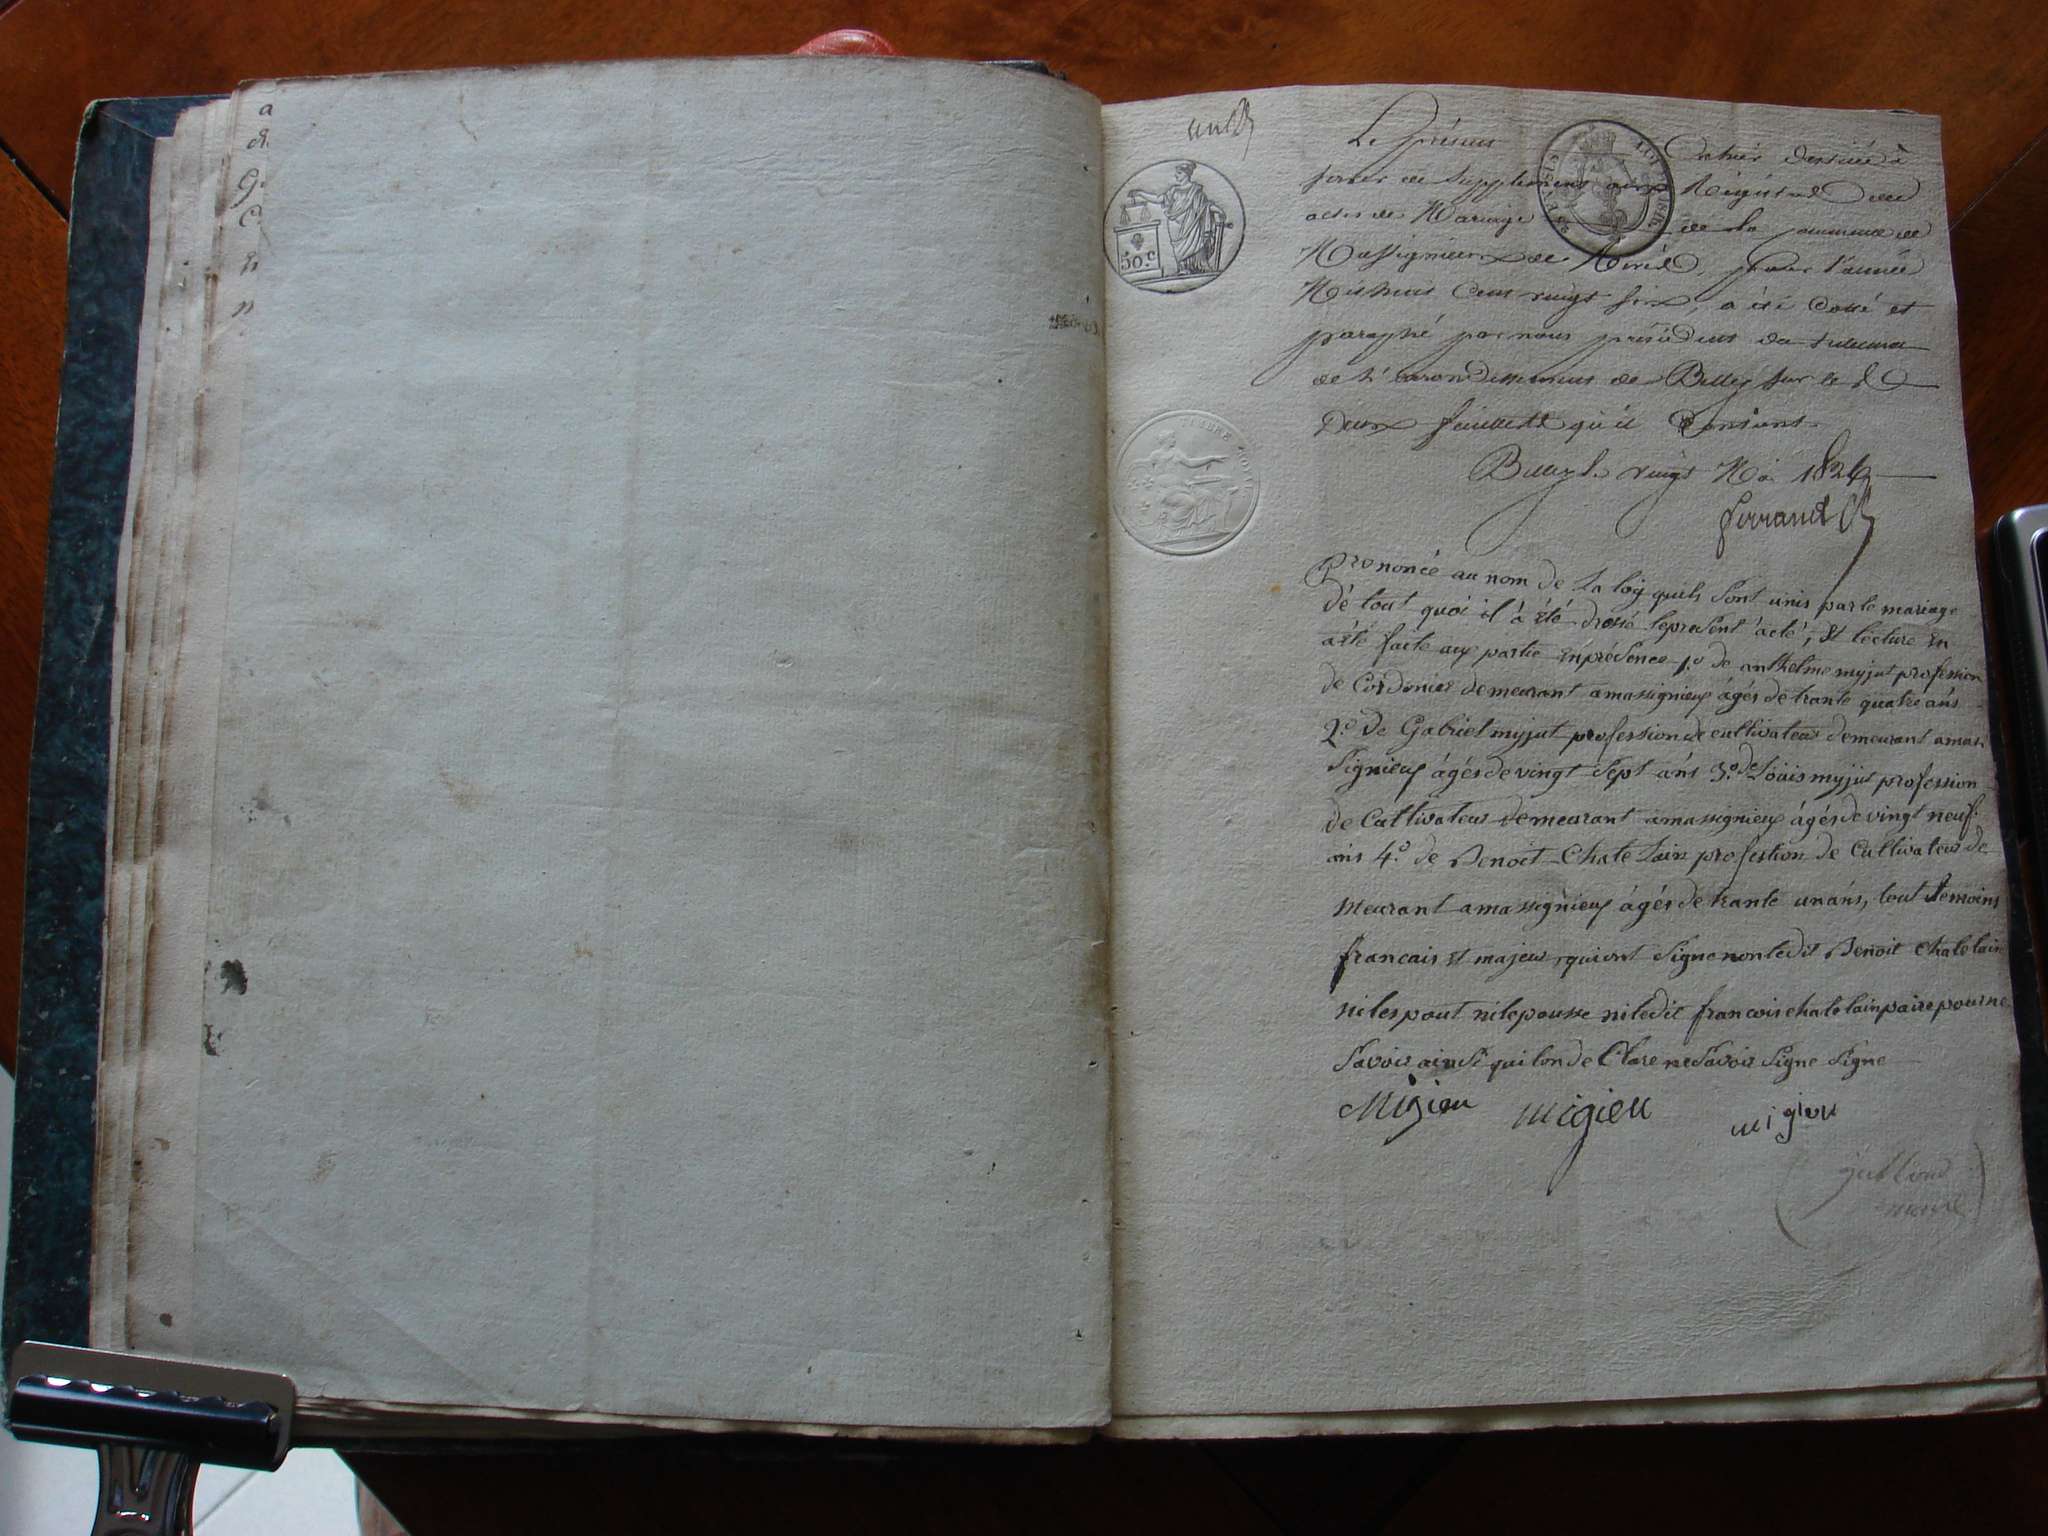 a
d.
G.
C.
n
50.c
TIMBRE ROYAL
Le présent Cahier destiné à
servir de Supplément aux Régistres des
actes de Mariage de la commune de
Massignieux de Rives, pour l'année
Mil huit Cent vingt six, a été Cotté et
paraphé par nous président du tribunal
de l'arrondissement de Belley sur le
deux feuillets qu'il Contient.
Belley le vingt Mai 1826
ferrand
prononcé au nom de La loy quils Sont unis par le mariage
dé tout quoi il à été dressé leprésent acté, Et lecture En
àété faite aux partie Enprésence 1.º de anthelme myjut profession
de Cordonier demeurant amassignieux àgés de trante quatre ans
2.º de Gabriel myjut profession de cultivateur demeurant amas
Signieux àgés de vingt Sept ans 3.º de Loüis myjut profession
de Cultivateur demeurant amassignieux àgés de vingt neuf
ans 4.º de Benoit Chatelain profestion de Cultivateur de
meurant amassignieux àgés de trante unans, tout temoins
francais Et majeur, quiont Signe nonledit Benoit Chatelain
nilespout nilepousse niledit francois chatelain paire pour ne
Savoir ainsi quilon de Clare ne Savoir Signe Signe
Migieu migieu migieu